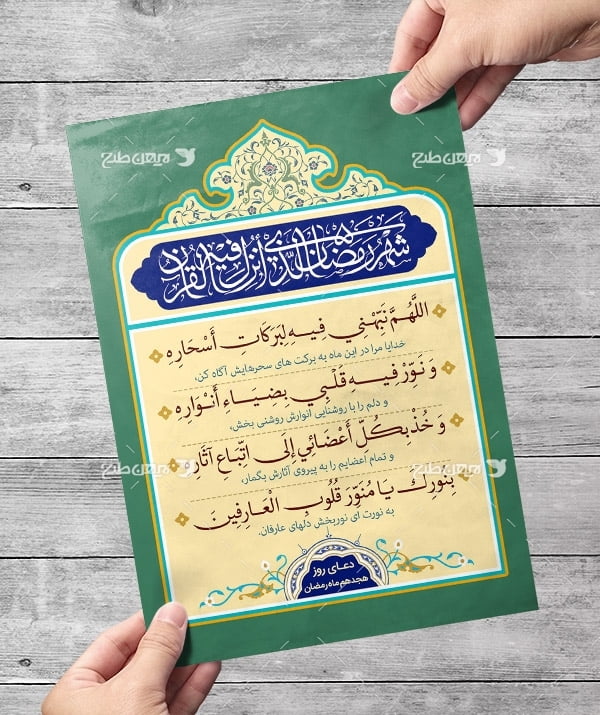 شهر رمضان الذي أنزل فيه القرآن
اللَّهُمَّ نَبِّهْنِي فِيهِ لِبَرَكَاتِ أَسْحَارِهِ
خدایا مرا در این ماه به برکت های سحرهایش آگاه کن،
وَ نَوِّرْ فِيهِ قَلْبِي بِضِيَاءِ أَنْوَارِهِ
و دلم را با روشنایی انوارش روشنی بخش،
وَ خُذْ بِكُلِّ أَعْضَائِي إِلَى اتِّبَاعِ آثَارِهِ
و تمام اعضایم را به پیروی آثارش بگمار،
بِنُورِكَ يَا مُنَوِّرَ قُلُوبِ الْعَارِفِينَ
به نورت ای نوربخش دلهای عارفان.
دعای روز
هجدهم ماه رمضان
میهن طرح
میهن طرح
میهن طرح
میهن طرح